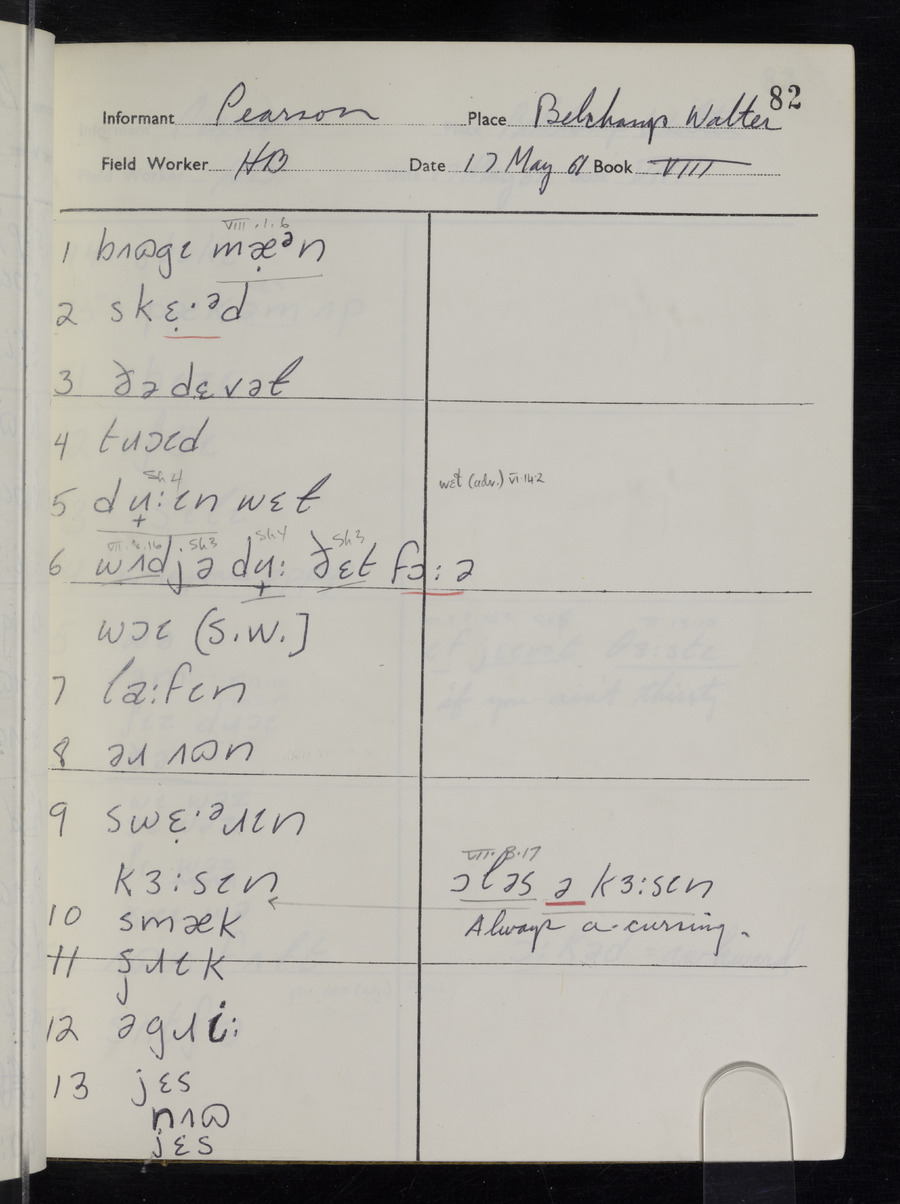 82
Informant Pearson Place Belchamp Walter
Field Worker HB Date 17 May 61 Book VIII
VIII.1.6
1 bʌʊgɪ mæ̣ᵊn
2 skɛ̣·ᵊd
3 ðə dɛvəɫ
4 tɹɔɪd
Sh4
5 dʉ:ɪn wɛɫ
wɛɫ (adv.) VI.14.2
VII.8.16 Sh3 Sh4 Sh3
6 wʌdjə dʉ: ðɛt fɔ:ə
wɔɪ (S.W.]
7 la:fɪn
8 əɹ ʌʊn
9 swɛ·ᵊɹɪn
VII.3.17
kɜ:sɪn
ɔləs ə kɜ:sɪn
10 smæk
Always a-cursing.
11 sɹɪk
12 əgɹi:
13 jɛs
nʌʊ
jɛs